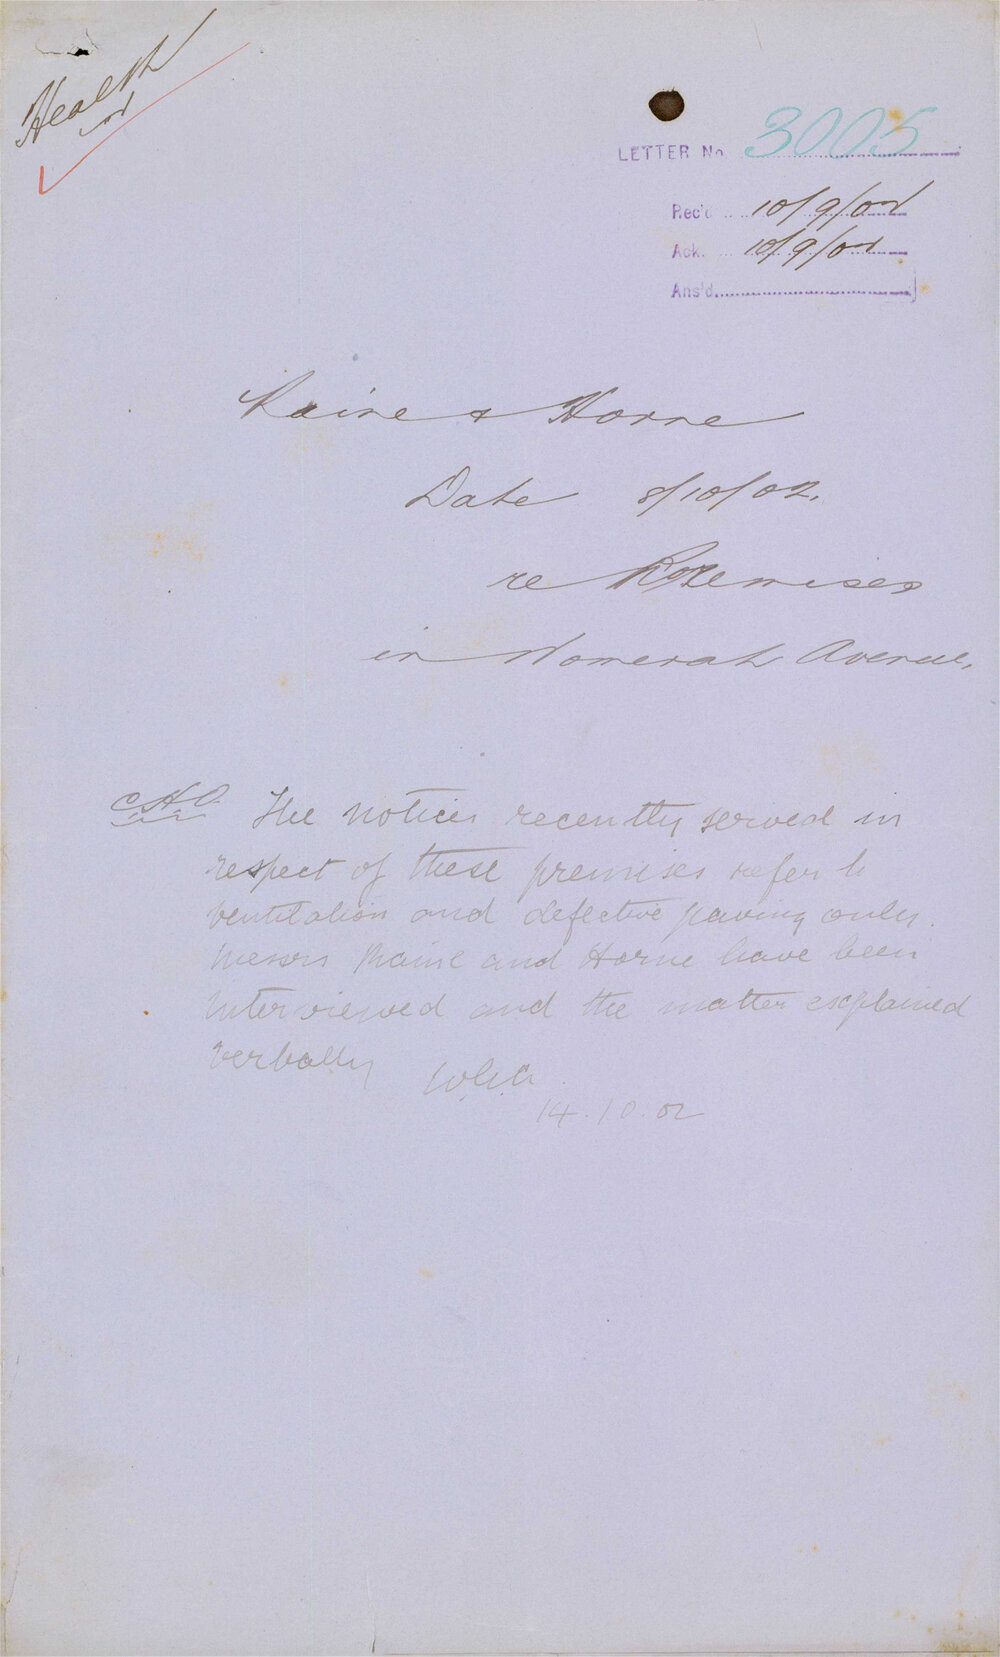 Health
LETTER No 3005
Rec'd 10/9/02
Ack. 10/9/02
Ans'd
Raine & Horne
Date 8/10/02.
re Premises
in Womerah Avenue.
C.H.O. The notices recently served in
respect of these premises refer to
ventilation and defective paving only.
Messrs Raine and Horne have been
interviewed and the matter explained
verbally
14.10.02